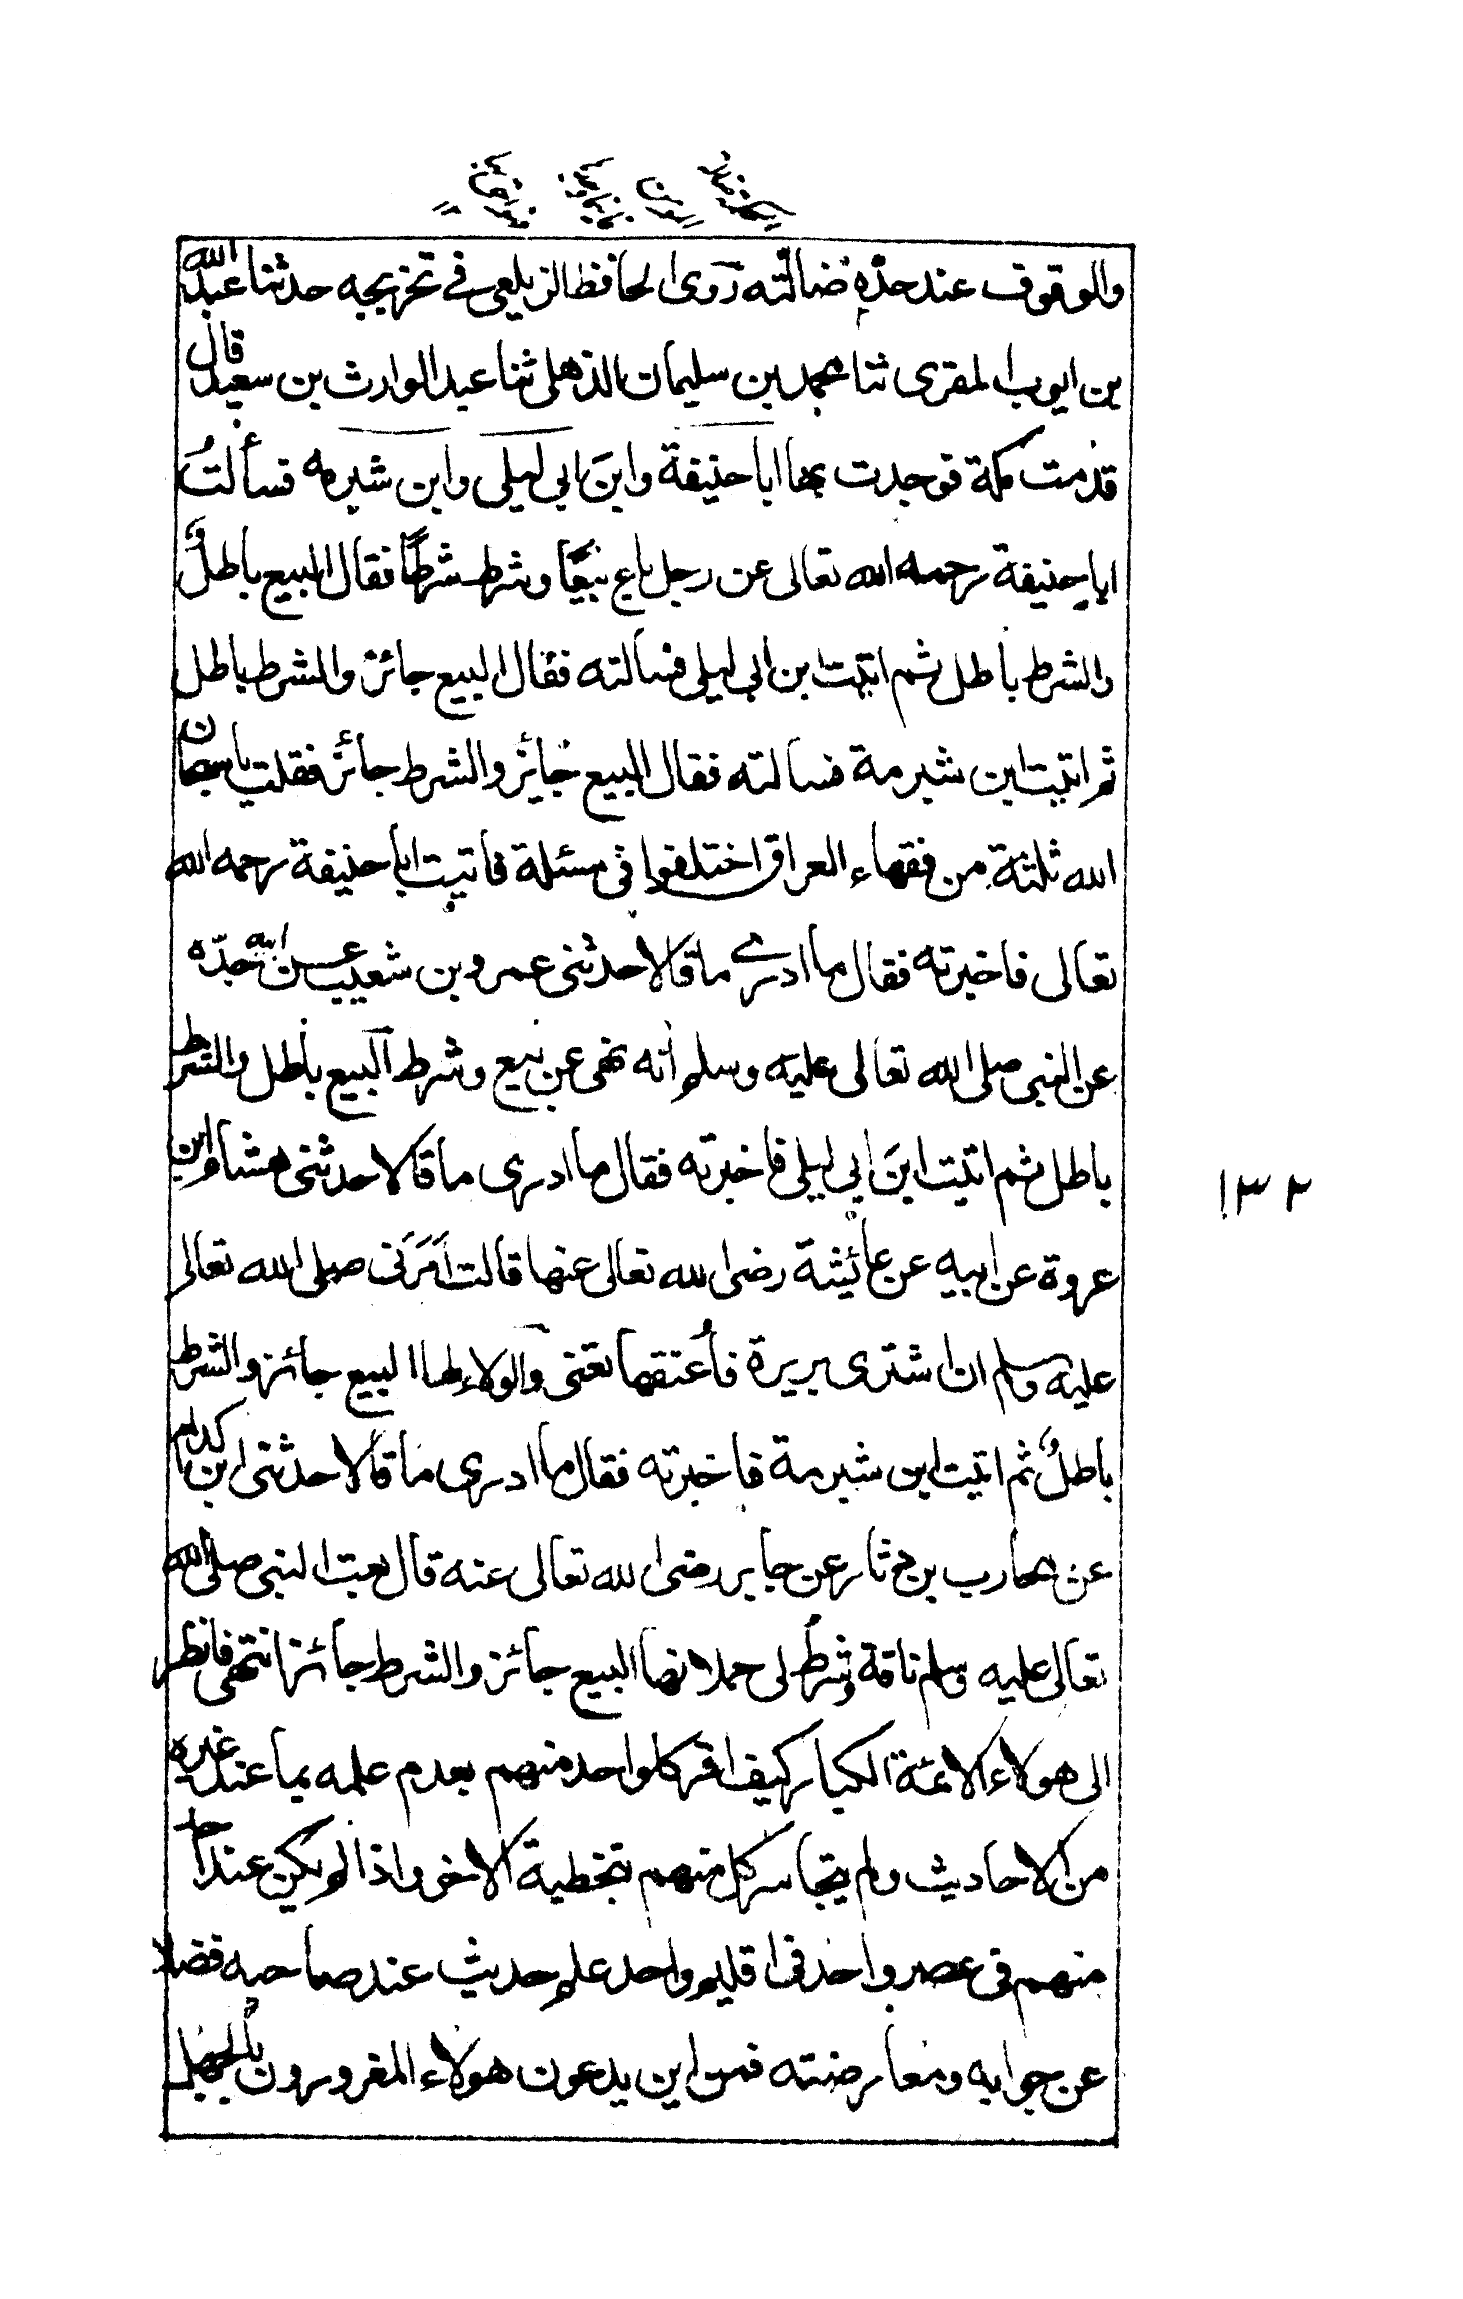 والوقوف عند حدّه ضالته روى الحافظ الزيلعى فى تخريجه حدثنا عبد الله
بن ايوب المقرى ثنا محمد بن سليمان الذهلى ثنا عبد الوارث بن سعيد قال
قدمت مكة فوجدت بها ابا حنيفة وابن ابى ليلى وابن شبرمه فسألتُ
ابا حنيفة رحمه الله تعالى عن رجل باع بيعًا وشرط شرطًا فقال البيع باطلٌ
والشرط باطل ثم اتيت ابن ابى ليلى فسالته فقال البيع جائز والشرط باطل
ثم اتيت ابن شبرمة فسالته فقال البيع جائز والشرط جائز فقلت يا سبحان
الله ثلثة من فقهاء العراق اختلفوا فى مسئلة فاتيت ابا حنيفة رحمه الله
تعالى فاخبرته فقال ما ادرے ما قالا حدثنى عمرو بن شعيب عن ابيه جدّه
عن النبى صلى الله تعالى عليه وسلم أنه نهى عن بيع وشرط البيع باطل والشرط
باطل ثم اتيت ابنَ ابى ليلى فاخبرته فقال ما ادرى ما قالا حدثنى هشام ابن
عروة عن ابيه عن عائيشة رضى الله تعالى عنها قالت اَمَرَنى صلى الله تعالى
عليه وسلم ان اشترى بريرة فأُعتقها يعنى والولاء لها البيع جائز والشرط
باطلٌ ثم اتيت ابن شبرمة فاخبرته فقال ما ادرى ما قالا حدثنى ابن كدام
عن محارب بن دثار عن جابر رضى الله تعالى عنه قال بعت النبى صلى الله
تعالى عليه وسلم ناقة وشرط لى حملانها البيع جائز والشرط جائز انتهى فانظر
الى هولاء الائمة الكبار كيف اقر كل واحد منهم بعدم علمه بما عند غيره
من الاحاديث ولم يتجاسر كل منهم بتخطية الاخر واذا لم يكن عند احد
منهم فى عصر واحد فى اقليم واحد علم حديث عند صاحبه فضلا
عن جوابه ومعارضته فمن اين يدعون هولاء المغرورون بالجهل
١٣٢